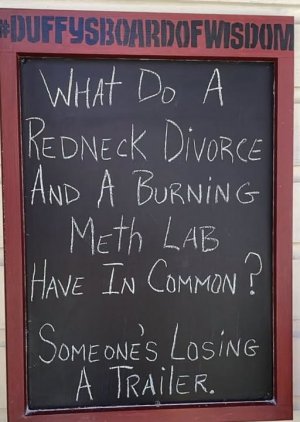 #DUFFYSBOARDOFWISDOM
WHAT DO A
REDNECK DIVORCE
AND A BURNING
METH LAB
HAVE IN COMMON?
SOMEONE'S LOSING
A TRAILER.